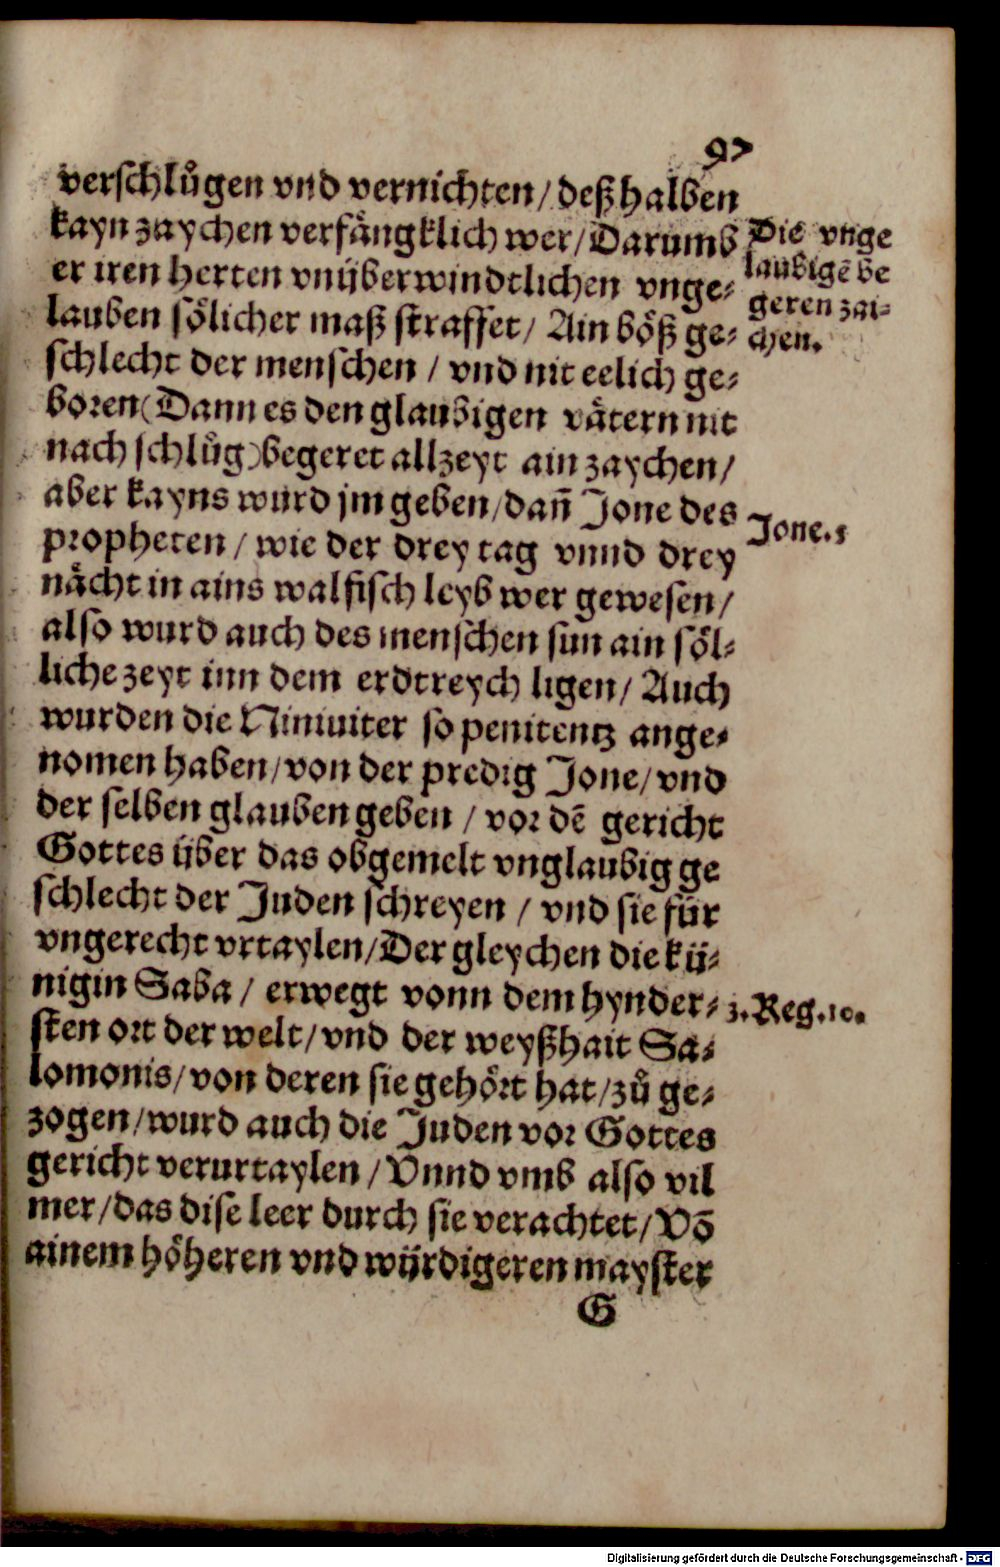 97
verschlůgen vnd vernichten/ deßhalben
kayn zaychen verfängklich wer/ Darumb
er iren herten vnüberwindtlichen vnge⸗
lauben sölicher maß straffet/ Ain böß ge⸗
schlecht der menschen / vnd nit eelich ge⸗
boren (Dann es den glaubigen vätern nit
nach schlůg) begeret allzeyt ain zaychen/
aber kayns wurd jm geben/ dañ Jone des
propheten / wie der drey tag vnnd drey
nächt in ains walfisch leyb wer gewesen/
also wurd auch des menschen sun ain söl⸗
liche zeyt inn dem erdtreych ligen/ Auch
wurden die Niniuiter so penitentz ange⸗
nomen haben/ von der predig Jone/ vnd
der selben glauben geben / vor dē gericht
Gottes über das obgemelt vnglaubig ge
schlecht der Juden schreyen / vnd sie für
vngerecht vrtaylen/ Der gleychen die kü⸗
nigin Saba / erwegt vonn dem hynder⸗
sten ort der welt/ vnd der weyßhait Sa⸗
lomonis/ von deren sie gehört hat/ zů ge⸗
zogen/ wurd auch die Juden vor Gottes
gericht verurtaylen / Vnnd vmb also vil
mer/ das dise leer durch sie verachtet/ Vō
ainem höheren vnd würdigeren mayster
G
Die vnge
laubigē be
geren zai⸗
chen.
Jone.1
3. Reg.10.
Digitalisierung gefördert durch die Deutsche Forschungsgemeinschaft - DFG